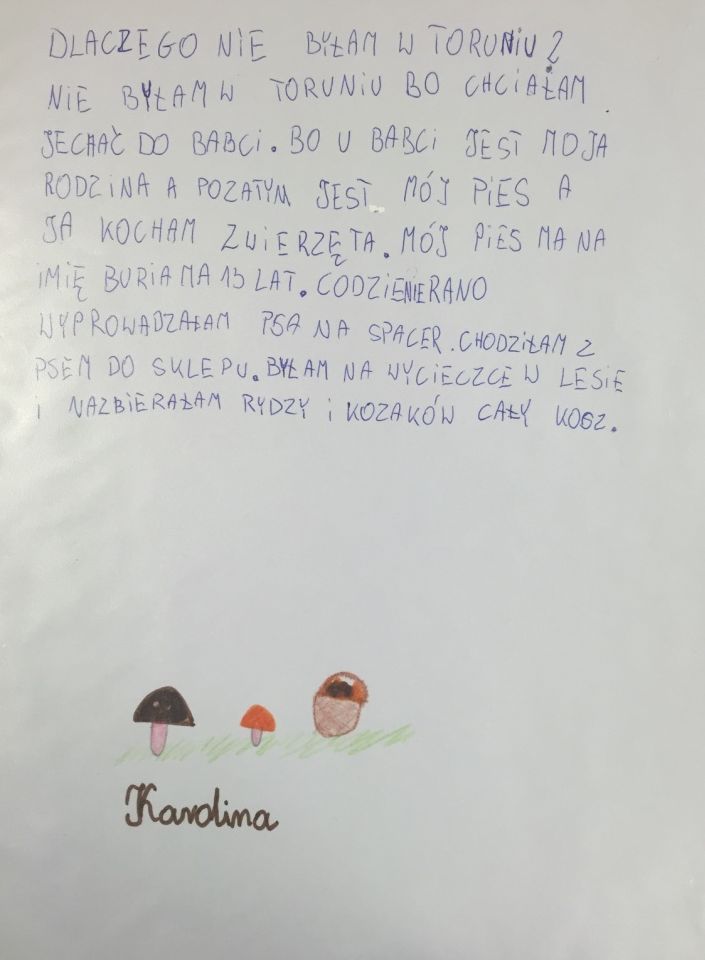 DLACZEGO NIE BYŁAM W TORUNIU?
NIE BYŁAM W TORUNIU BO CHCIAŁAM
JECHAĆ DO BABCI. BO U BABCI JEST MOJA
RODZINA A POZATYM JEST MÓJ PIES A
JA KOCHAM ZWIERZĘTA. MÓJ PIES MA NA
IMIĘ BURIA MA 13 LAT. CODZIENIERANO
WYPROWADZAŁAM PSA NA SPACER. CHODZIŁAM Z
PSEM DO SKLEPU. BYŁAM NA WYCIECZCE W LESIE
I NAZBIERAŁAM RYDZY I KOZAKÓW CAŁY KOSZ.
Karolina